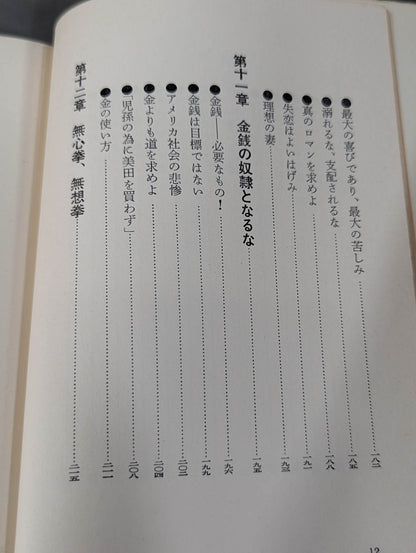 ●最大の喜びであり、最大の苦しみ……一八二
●溺れるな、支配されるな……一八五
●真のロマンを求めよ……一八八
●失恋はよいはげみ……一九一
●理想の妻……一九三
第十一章　金銭の奴隷となるな……一九五
●金銭——必要なもの！……一九六
●金銭は目標ではない……一九九
●アメリカ社会の悲惨……二〇二
●金よりも道を求めよ……二〇四
●「児孫の為に美田を買わず」……二〇八
●金の使い方……二一一
第十二章　無心拳、無想拳……二一五
12